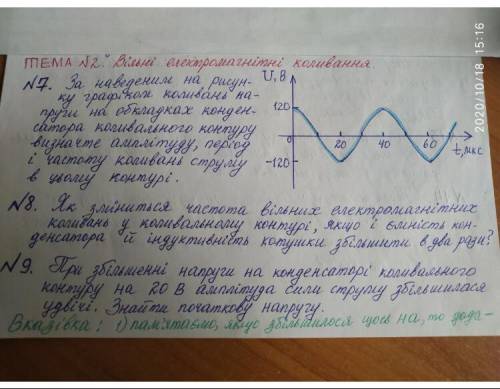 ТЕМА №2. Вільні електромагнітні коливання.
№7. За наведеним на рисун-
ку графіком коливань на-
пруги на обкладках конден-
сатора коливального контуру
визначте амплітуду, період
і частоту коливань струму
в цьому контурі.
U, В
120
0
-120
20 40 60
t, мкс
№8. Як зміниться частота вільних електромагнітних
коливань у коливальному контурі, якщо і ємність кон-
денсатора й індуктивність котушки збільшити в два рази?
№9. При збільшенні напруги на конденсаторі коливального
контуру на 20 В амплітуда сили струму збільшилася
удвічі. Знайти початкову напругу.
Вказівка: 1) пам'ятаємо, якщо збільшилося щось на, то дода-
2020/10/18 15:16